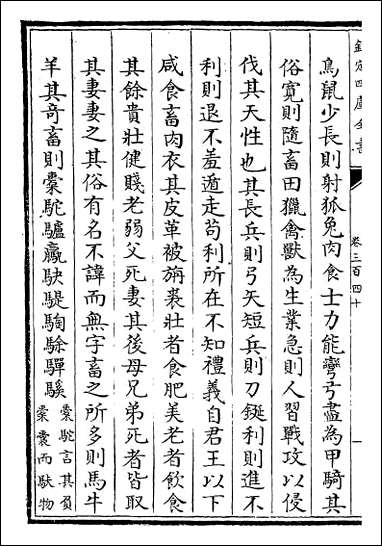 欽定四庫全書
卷三百四十
一
鳥鼠少長則射狐兔肉食士力能彎弓盡為甲騎其
俗寛則隨畜田獵禽獸為生業急則人習戰攻以侵
伐其天性也其長兵則弓矢短兵則刀鋋利則進不
利則退不羞遁走苟利所在不知禮義自君王以下
咸食畜肉衣其皮革被旃裘壯者食肥美老者飲食
其餘貴壯健賤老弱父死妻其後母兄弟死者皆取
其妻妻之其俗有名不諱而無字畜之所多則馬牛
羊其奇畜則橐駝驢驘駃騠騊駼驒騱
橐駝言其負
橐囊而馱物